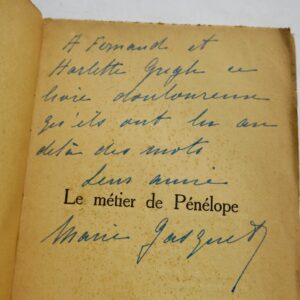 A Fernand et
Harlette Gregh ce
livre douloureux
qu'ils ont lu au
delà des mots
Leur amie
Le métier de Pénélope
Marie Gasquet